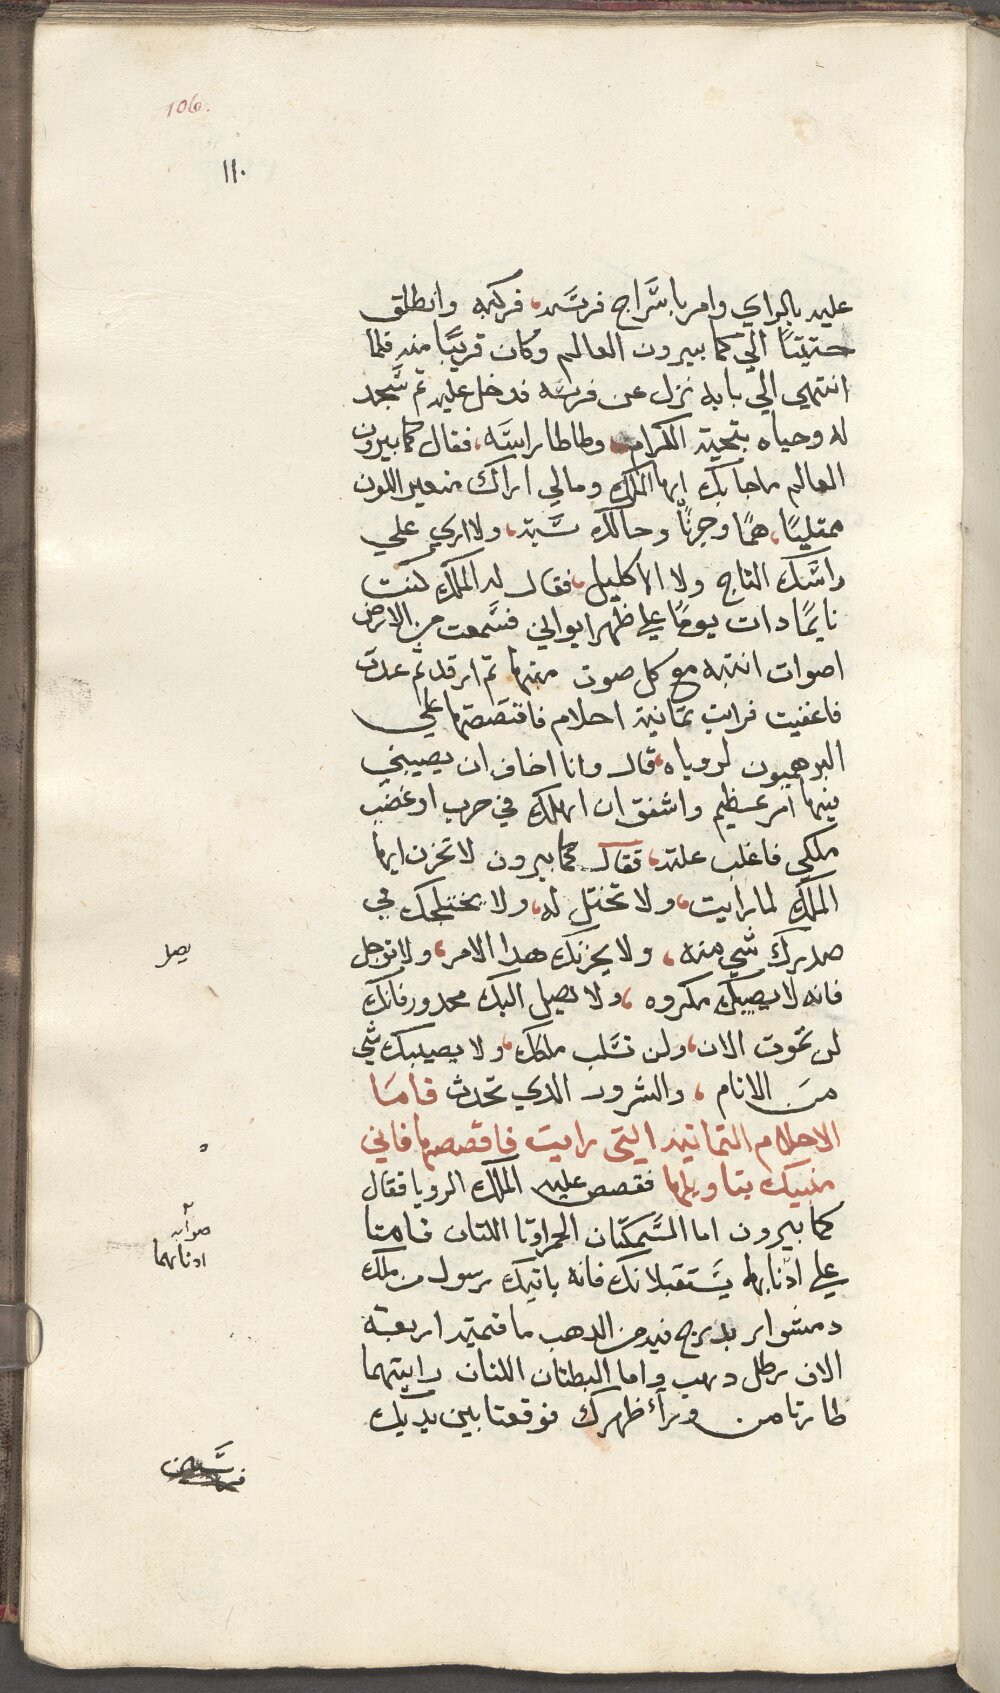 106.
١١٠
عليه بالراي وامر باسراج فرسه، فركبه وانطلق
حتيتا الي كما بيرون العالم وكان قريبا منه فلما
انتهي الي بابه نزل عن فرسه فدخل عليه تم سجد
له وحياه بتحية الكرام، وطاطا راسه، فقال كما بيرون
العالم ماجابك ايها الملك ومالي اراك متغير اللون
ممتليا، هما وحزنا وحالك سية، ولا اري علي
راسك التاج ولا الاكليل، فقال له الملك كنت
نايما دات يوما علي ظهر ايواني فسمعت من الارض
اصوات انتبه مع كل صوت منها تم ارقد تم عدت
فاغفيت فرايت تمانية احلام فاقتصصتها علي
البرهميون لروياه، قال وانا اخاف ان يصيبني
منها امر عظيم واشفق ان اهلك في حرب او غضب
ملكي فاغلب عليه، فقال كما بيرون لا تحزن ايها
الملك لما رايت، ولا تختل له، ولا يختلجك في
صدرك شي منه، ولا يحزنك هدا الامر، ولا توجل
فانه لا يصيبك مكروه، ولا يصل اليك محدور فانك
لن تموت الان، ولن تسلب ملكك، ولا يصيبك شي
من الانام، والشرور الدي تحدث فاما
الاحلام التمانية التي رايت فاقصصها فاني
منبيك بتاويلها فقصص عليه الملك الرويا فقال
كما بيرون اما السمكتان الحمراوتا اللتان قامتا
علي ادنابها يستقبلانك فانه ياتيك رسول من ملك
دمشوار بدرج فيه من الدهب ما قيمته اربعة
الاف رطل دهب واما البطتان اللتان رايتهما
طارتا من ورأء ظهرك فوقعتا بين يديك
يصل
صوابه
ادنابهما